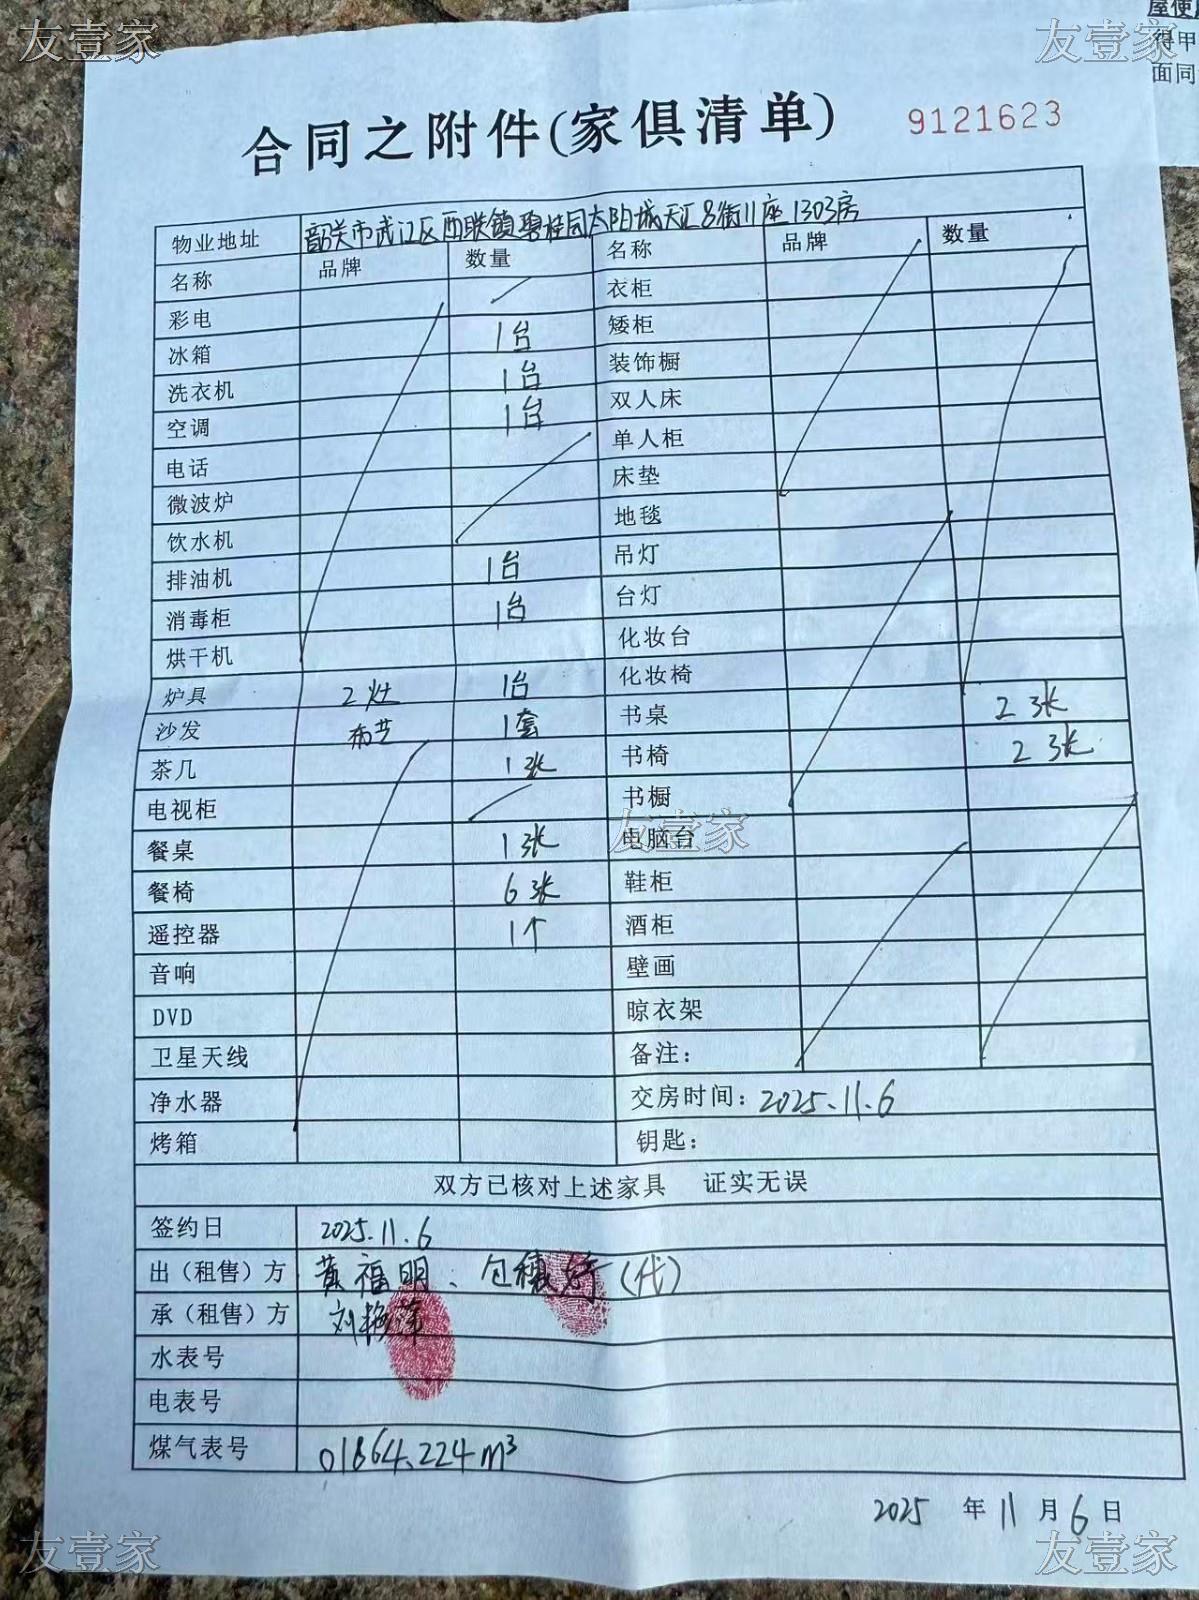 友壹家
友壹家
屋使
得甲
面同
合同之附件(家俱清单)
9121623
物业地址 韶关市武江区西联镇碧桂园太阳城天汇8街11座1303房
名称 品牌 数量 名称 品牌 数量
彩电 衣柜
冰箱 1台 矮柜
洗衣机 1台 装饰橱
空调 1台 双人床
电话 单人柜
微波炉 床垫
饮水机 地毯
排油机 1台 吊灯
消毒柜 1台 台灯
烘干机 化妆台
炉具 2灶 1台 化妆椅
沙发 布艺 1套 书桌 2张
茶几 1张 书椅 2张
电视柜 书橱
友壹家
餐桌 1张 电脑台
餐椅 6张 鞋柜
遥控器 1个 酒柜
音响 壁画
DVD 晾衣架
卫星天线 备注:
净水器 交房时间: 2025.11.6
烤箱 钥匙:
双方已核对上述家具 证实无误
签约日 2025.11.6
出(租售)方 黄福明、包穗(代)
承(租售)方 刘艳萍
水表号
电表号
煤气表号 01864.224m³
2025 年 11 月 6 日
友壹家
友壹家